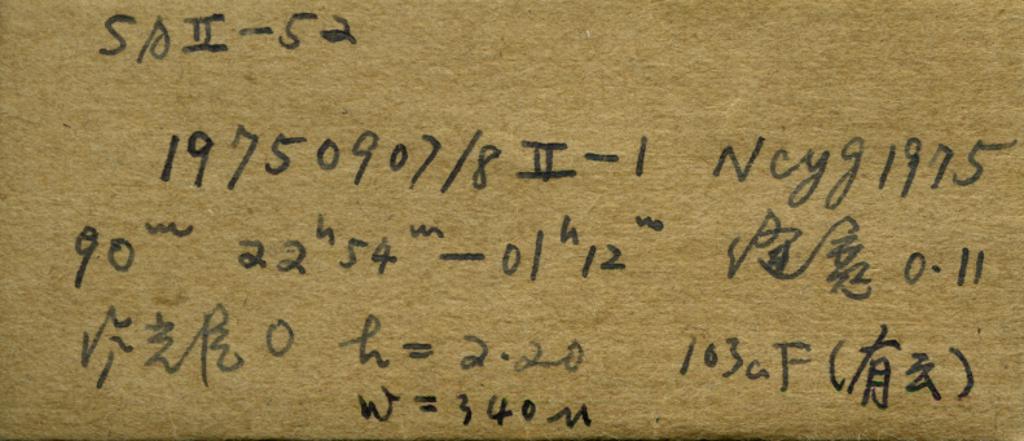 SA II-52
19750907/8 II-1 Ncyg 1975
90ᵐ 22ʰ54ᵐ-01ʰ12ᵐ 0.11
0 h=2.20 103aF (有云)
w=340μ